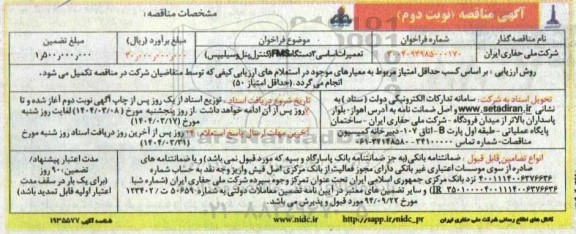 آگهی مناقصه (نوبت دوم)
مشخصات مناقصه:
نام مناقصه گذار
شماره فراخوان
موضوع فراخوان
مبلغ برآورد (ریال)
مبلغ تضمین
شرکت ملی حفاری ایران
تعمیرات اساسی ۳ دستگاه FMS کنترل پنل وسیلیپس
۳۰,۰۰۰,۰۰۰,۰۰۰
۱,۵۰۰,۰۰۰,۰۰۰
روش ارزیابی : بر اساس کسب حداقل امتیاز مربوط به معیارهای موجود در استعلام های ارزیابی کیفی که توسط متقاضیان شرکت در مناقصه تکمیل می شود.
انجام می گردد. (حداقل امتیاز ۵۰)
تحویل اسناد به شرکت: سامانه تدارکات الکترونیکی دولت (ستاد) به
نشانی www.setadiran.ir و اصل ضمانت نامه به آدرس اهواز- بلوار
پاسداران بالاتر از میدان فرودگاه - شرکت ملی حفاری ایران - ساختمان
پایگاه عملیاتی - طبقه اول پارت B - اتاق ۱۰۷-دبیرخانه کمیسیون
مناقصات- شماره تماس ۳۴۱۴۸۵۸۰-۰۶۱
تاریخ شروع دریافت اسناد: توزیع اسناد از یک روز پس از چاپ آگهی نوبت دوم آغاز شده و تا
روز پس از آن ادامه خواهد داشت. از روز پنجشنبه مورخ (۱۴۰۴/۰۳/۰۸) لغایت روز شنبه
مورخ (۱۴۰۴/۰۳/۱۷)
آخرین مهلت ارسال پاسخ استعلام: روز پس از آخرین روز دریافت اسناد روز شنبه مورخ
(۱۴۰۴/۰۳/۳۱)
انواع تضامین قابل قبول: ضمانتنامه بانکی(به جز ضمانتنامه بانک پاسارگاد و سپه که مورد قبول نمی باشد) و یا ضمانتنامه های
صادره از سوی موسسات اعتباری غیر بانکی دارای مجوز فعالیت از بانک مرکزی اصل فیش واریز وجه نقد به حساب شماره
۴۰۰۱۱۱۴۰۰۶۳۷۶۶۳۶ نزد بانک مرکزی جمهوری اسلامی ایران تحت عنوان تمرکز وجوه سپرده شرکت ملی حفاری ایران (شماره شبا
و سایر تضمین های معتبر در آیین نامه تضمین معاملات دولتی به شماره ۵۰۶۵۹/ت ۱۲۳۴۰۲
مورخ ۹۴/۰۹/۲۲ مورد قبول و پذیرش می باشد.
مدت اعتبار پیشنهاد/
تضمین ۹۰ روز
(برای یک بار در سقف مدت
اعتبار اولیه قابل تمدید باشد)
کانال های اطلاع رسانی شرکت ملی حفاری ایران
http://sapp.ir/nidc_pr
www.nidc.ir
شناسه آگهی ۱۹۳۵۵۷۷